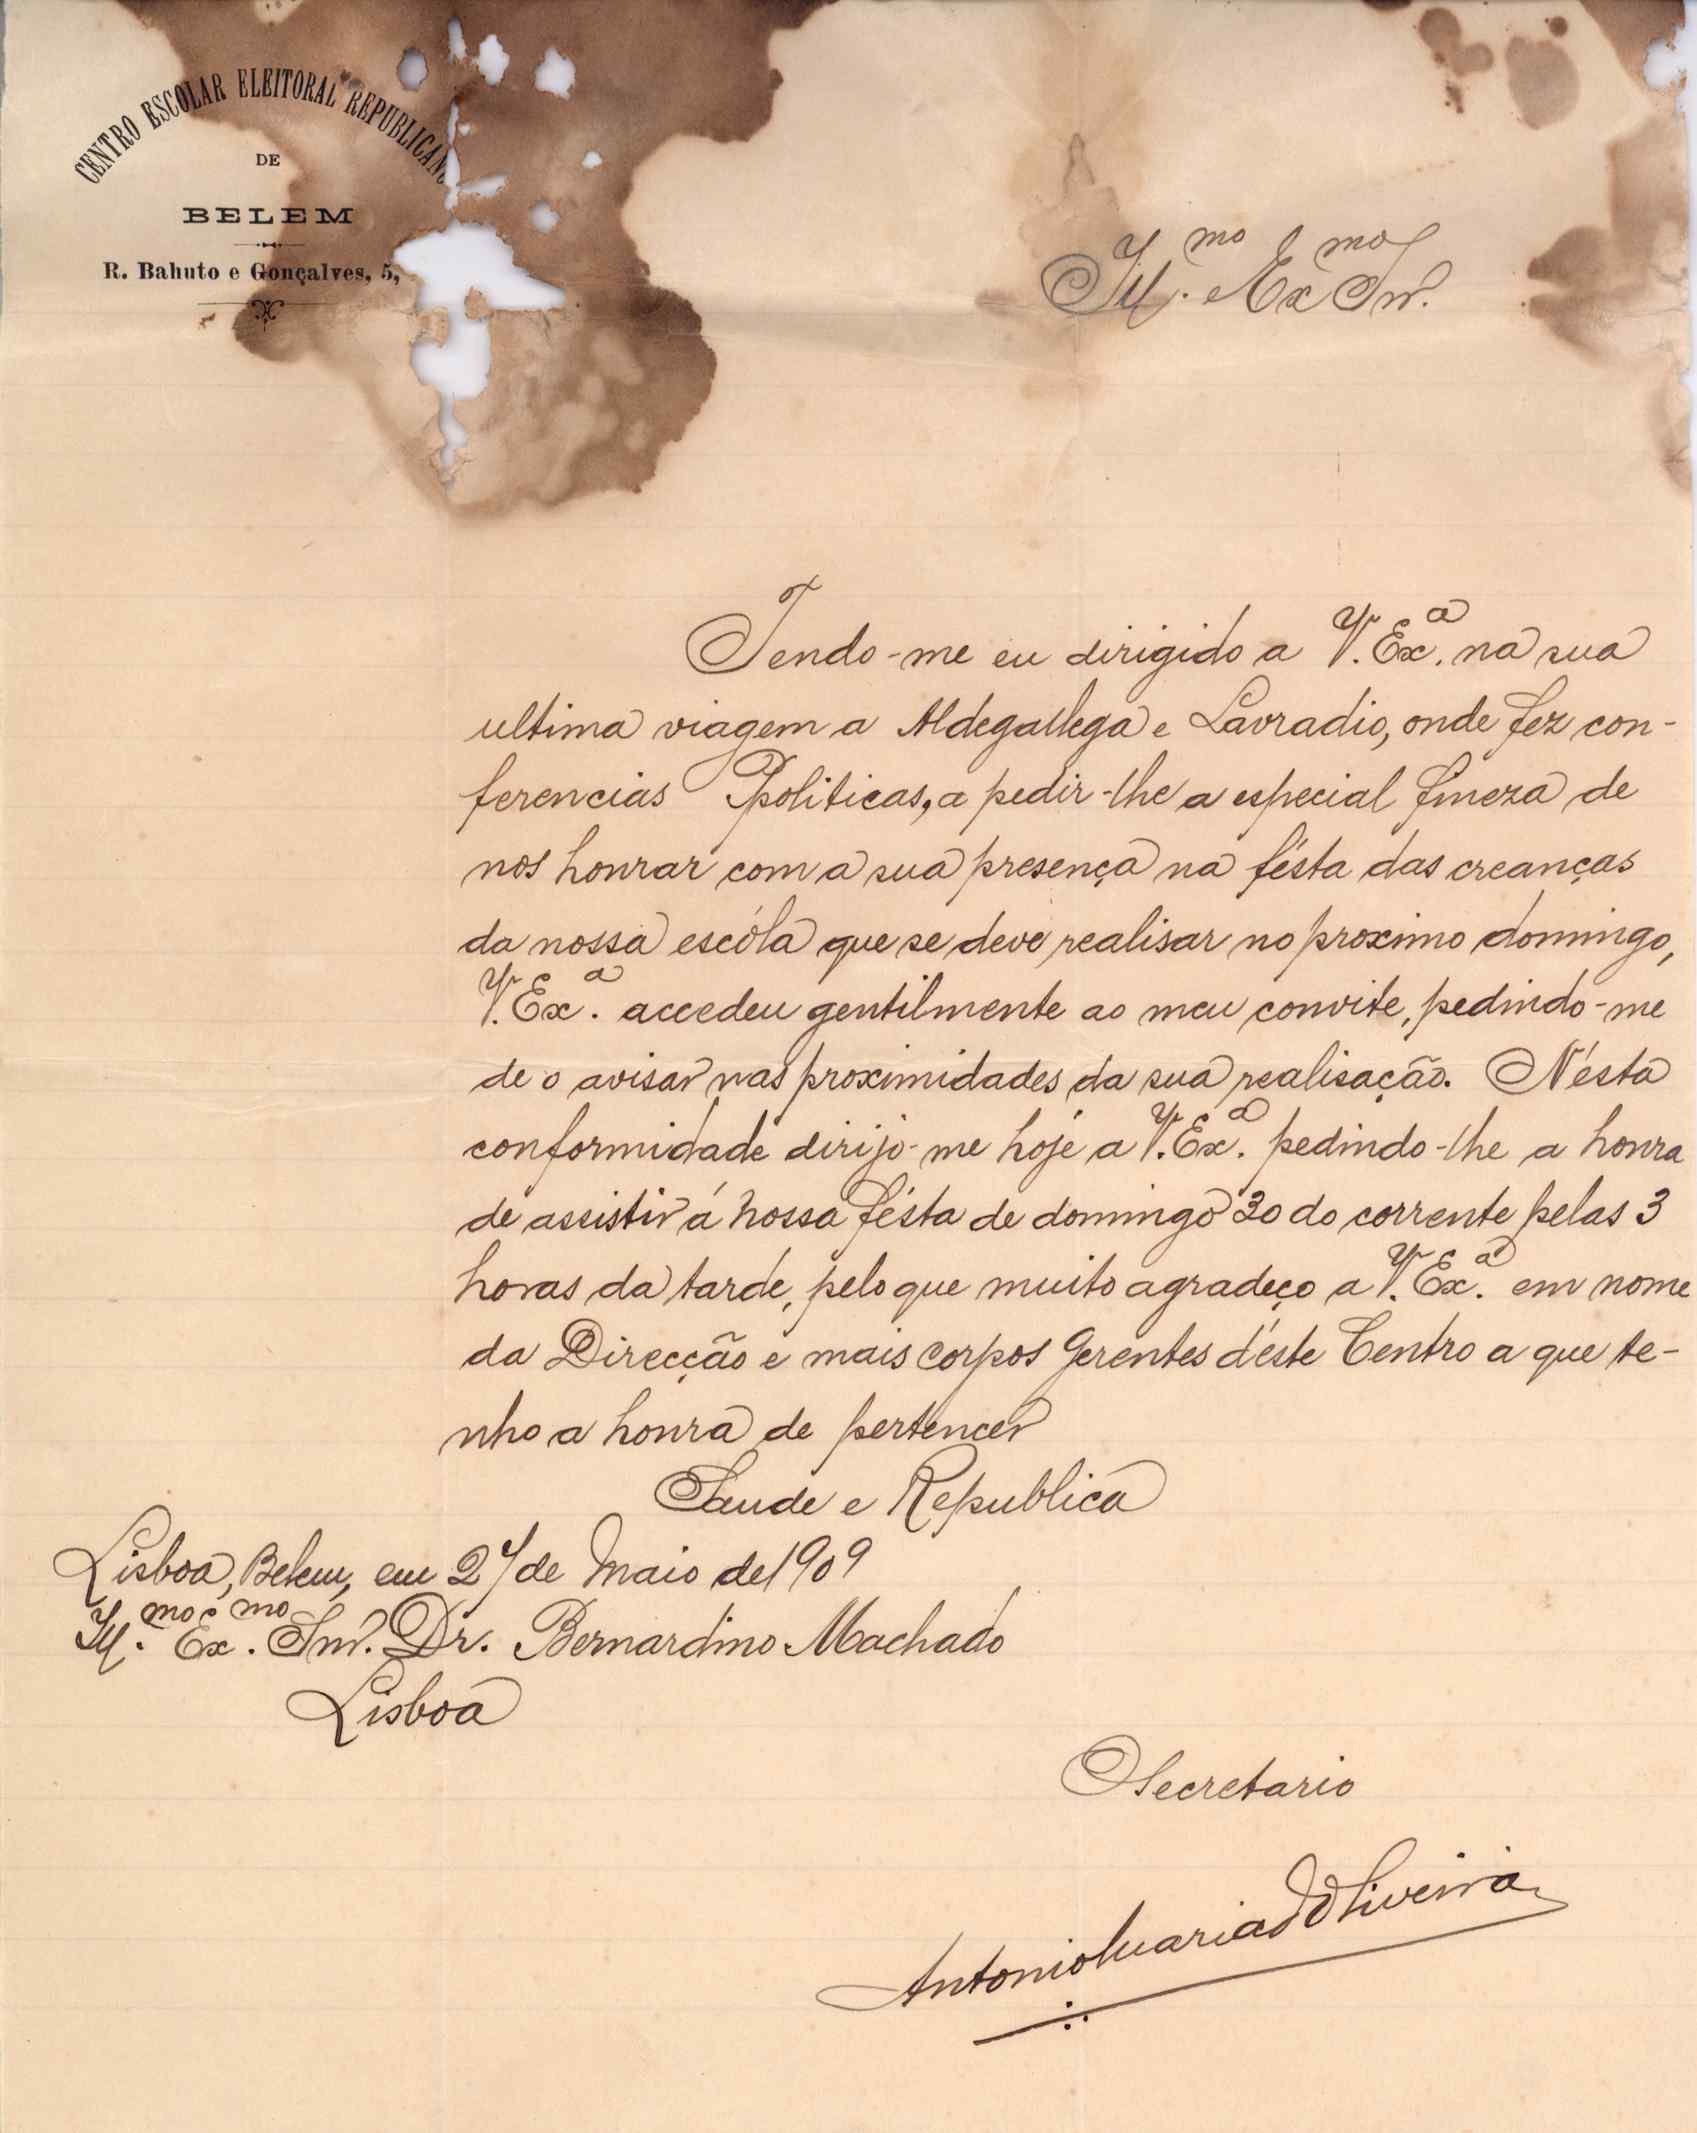 CENTRO ESCOLAR ELEITORAL REPUBLICANO
DE
BELEM
R. Bahuto e Gonçalves, 5,
Ill.mo e Ex.mo Snr.
Tendo-me eu dirigido a V. Ex.a na sua
ultima viagem a Aldegallega e Lavradio, onde fez con-
ferencias Politicas, a pedir-lhe a especial fineza de
nos honrar com a sua presença na fésta das creanças
da nossa escóla que se deve realisar no proximo domingo,
V. Ex.a accedeu gentilmente ao meu convite, pedindo-me
de o avisar nas proximidades da sua realisação. N'ésta
conformidade dirijo-me hoje a V. Ex.a pedindo-lhe a honra
de assistir á nossa fésta de domingo 30 do corrente pelas 3
horas da tarde, pelo que muito agradeço a V. Ex.a em nome
da Direcção e mais corpos gerentes d'éste Centro a que te-
nho a honra de pertencer
Saude e Republica
Lisboa, Belem, em 27 de Maio de 1909
Ill.mo e Ex.mo Snr. Dr. Bernardino Machado
Lisboa
O Secretario
Antonio Maria d'Oliveira